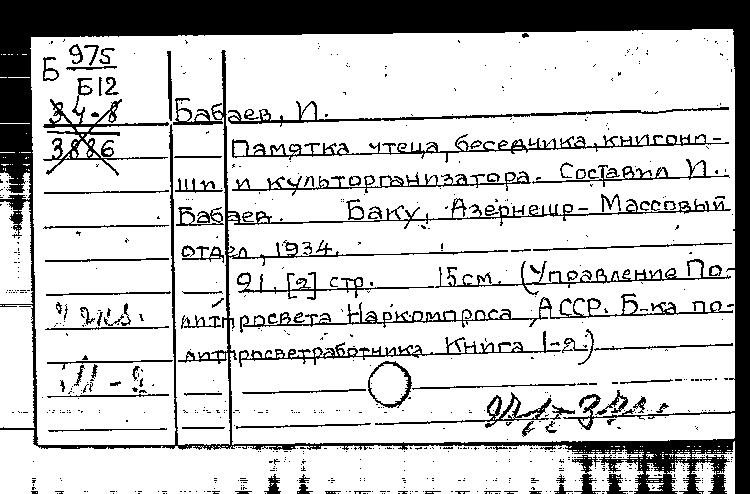 Б 975
Б12
34-8
3886
Бабаев, И.
Памятка чтеца, беседчика, книгоно-
ши и культорганизатора. Составил И.
Бабаев. Баку, Азернешр-Массовый
отдел, 1934.
21. [2] стр. 15 см. (Управление По-
литпросвета Наркомпроса АССР. Б-ка по-
литпросветработника Книга 1-я)
2 экз.